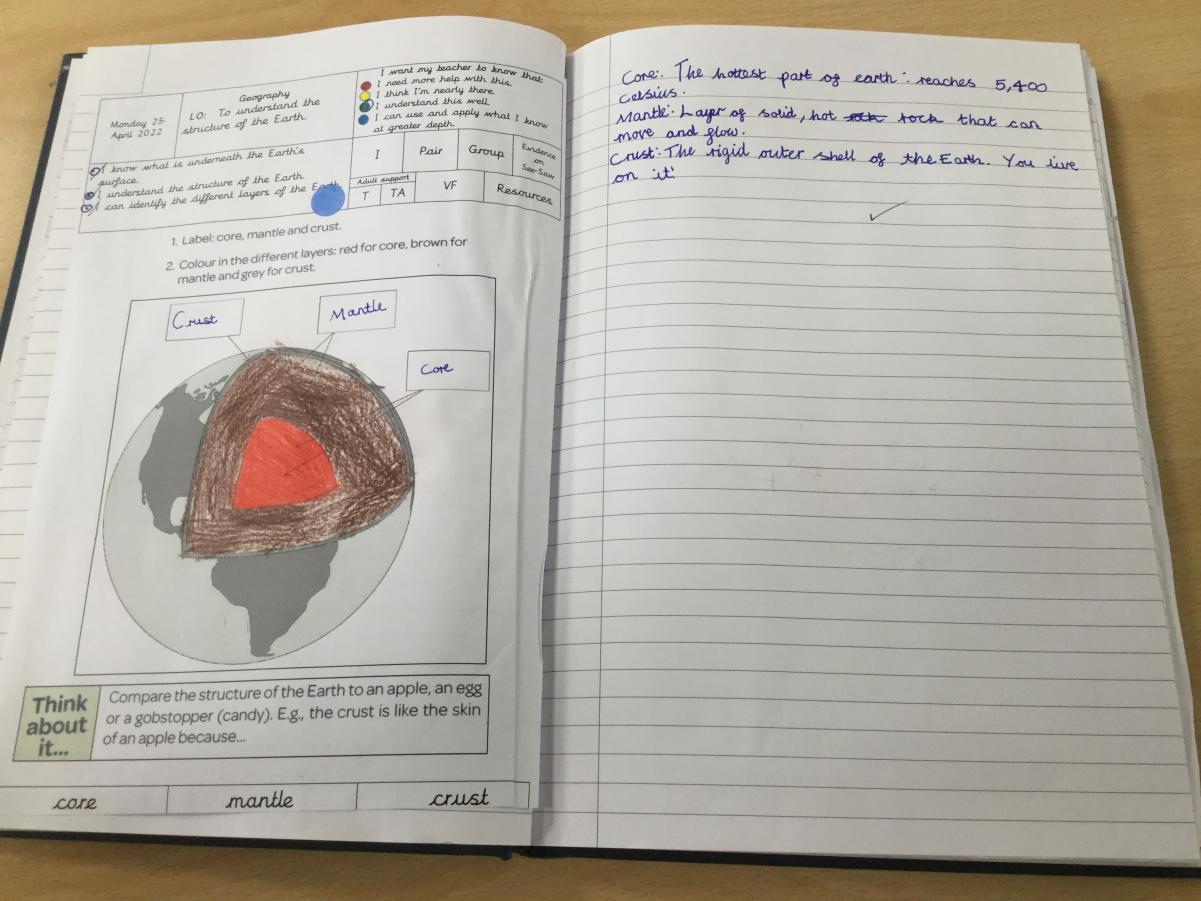 Geography
Monday 25
April 2022
LO: To understand the
structure of the Earth.
I want my teacher to know that:
I need more help with this.
I think I'm nearly there.
I understand this well.
I can use and apply what I know
at greater depth.
I know what is underneath the Earth's
surface.
I understand the structure of the Earth.
I can identify the different layers of the Earth
I
Pair
Group
Evidence
on
See-Saw
Adult support
T
TA
VF
Resources
1. Label: core, mantle and crust.
2. Colour in the different layers: red for core, brown for
mantle and grey for crust.
Crust
Mantle
Core
Think
about
it...
Compare the structure of the Earth to an apple, an egg
or a gobstopper (candy). E.g., the crust is like the skin
of an apple because...
core
mantle
crust
Core: The hottest part of earth: reaches 5,400
Celsius.
Mantle: Layer of solid, hot rock that can
move and flow.
Crust: The rigid outer shell of the Earth. You live
on it!